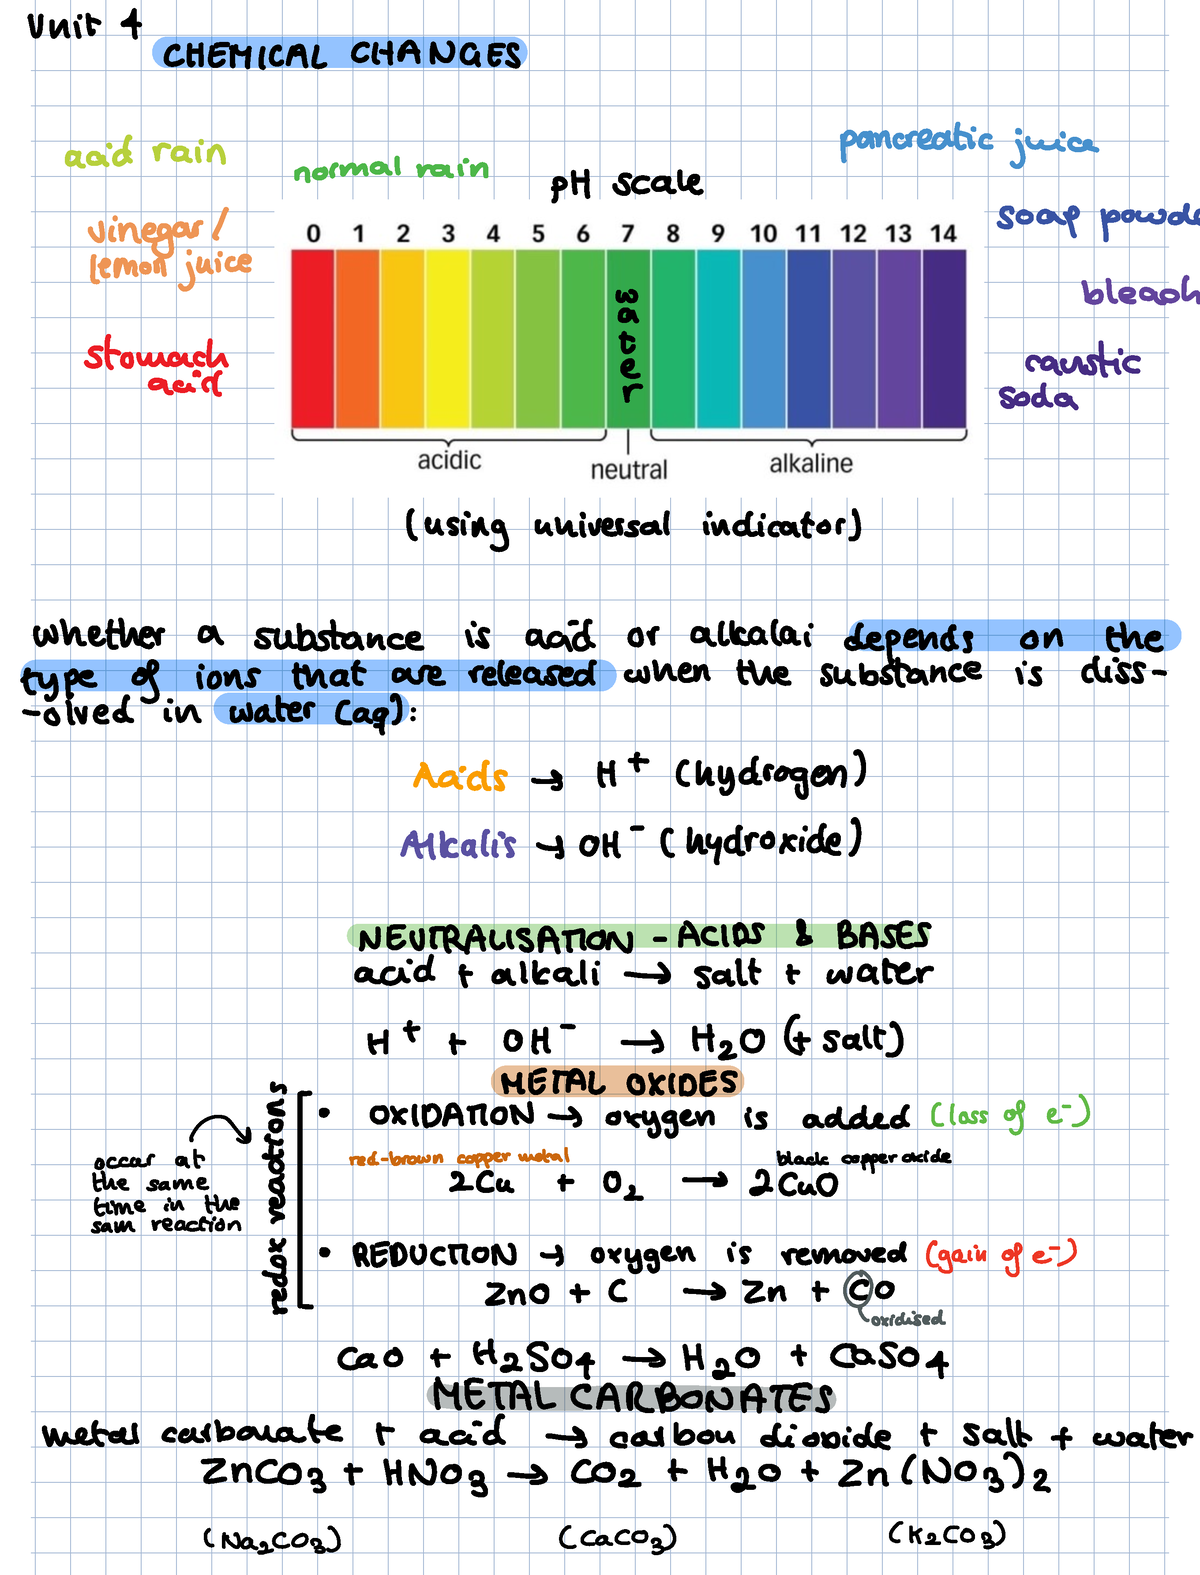 Unit 4
CHEMICAL CHANGES
acid rain
normal rain
pancreatic juice
pH scale
vinegar/
lemon juice
soap powde
0 1 2 3 4 5 6 7 8 9 10 11 12 13 14
bleach
water
stomach
acid
caustic
soda
acidic
neutral
alkaline
(using universal indicator)
whether a substance is acid or alkalai depends on the
type of ions that are released when the substance is diss-
-olved in water (aq):
Acids → H⁺ (hydrogen)
Alkalis → OH⁻ (hydroxide)
NEUTRALISATION - ACIDS & BASES
acid + alkali → salt + water
H⁺ + OH⁻ → H₂O (+ salt)
METAL OXIDES
redox reactions
occur at
the same
time in the
sam reaction
• OXIDATION → oxygen is added (loss of e⁻)
red-brown copper metal
black copper oxide
2Cu + O₂ → 2CuO
• REDUCTION → oxygen is removed (gain of e⁻)
ZnO + C → Zn + CO
oxidised
CaO + H₂SO₄ → H₂O + CaSO₄
METAL CARBONATES
metal carbonate + acid → carbon dioxide + salt + water
ZnCO₃ + HNO₃ → CO₂ + H₂O + Zn(NO₃)₂
(Na₂CO₃) (CaCO₃) (K₂CO₃)